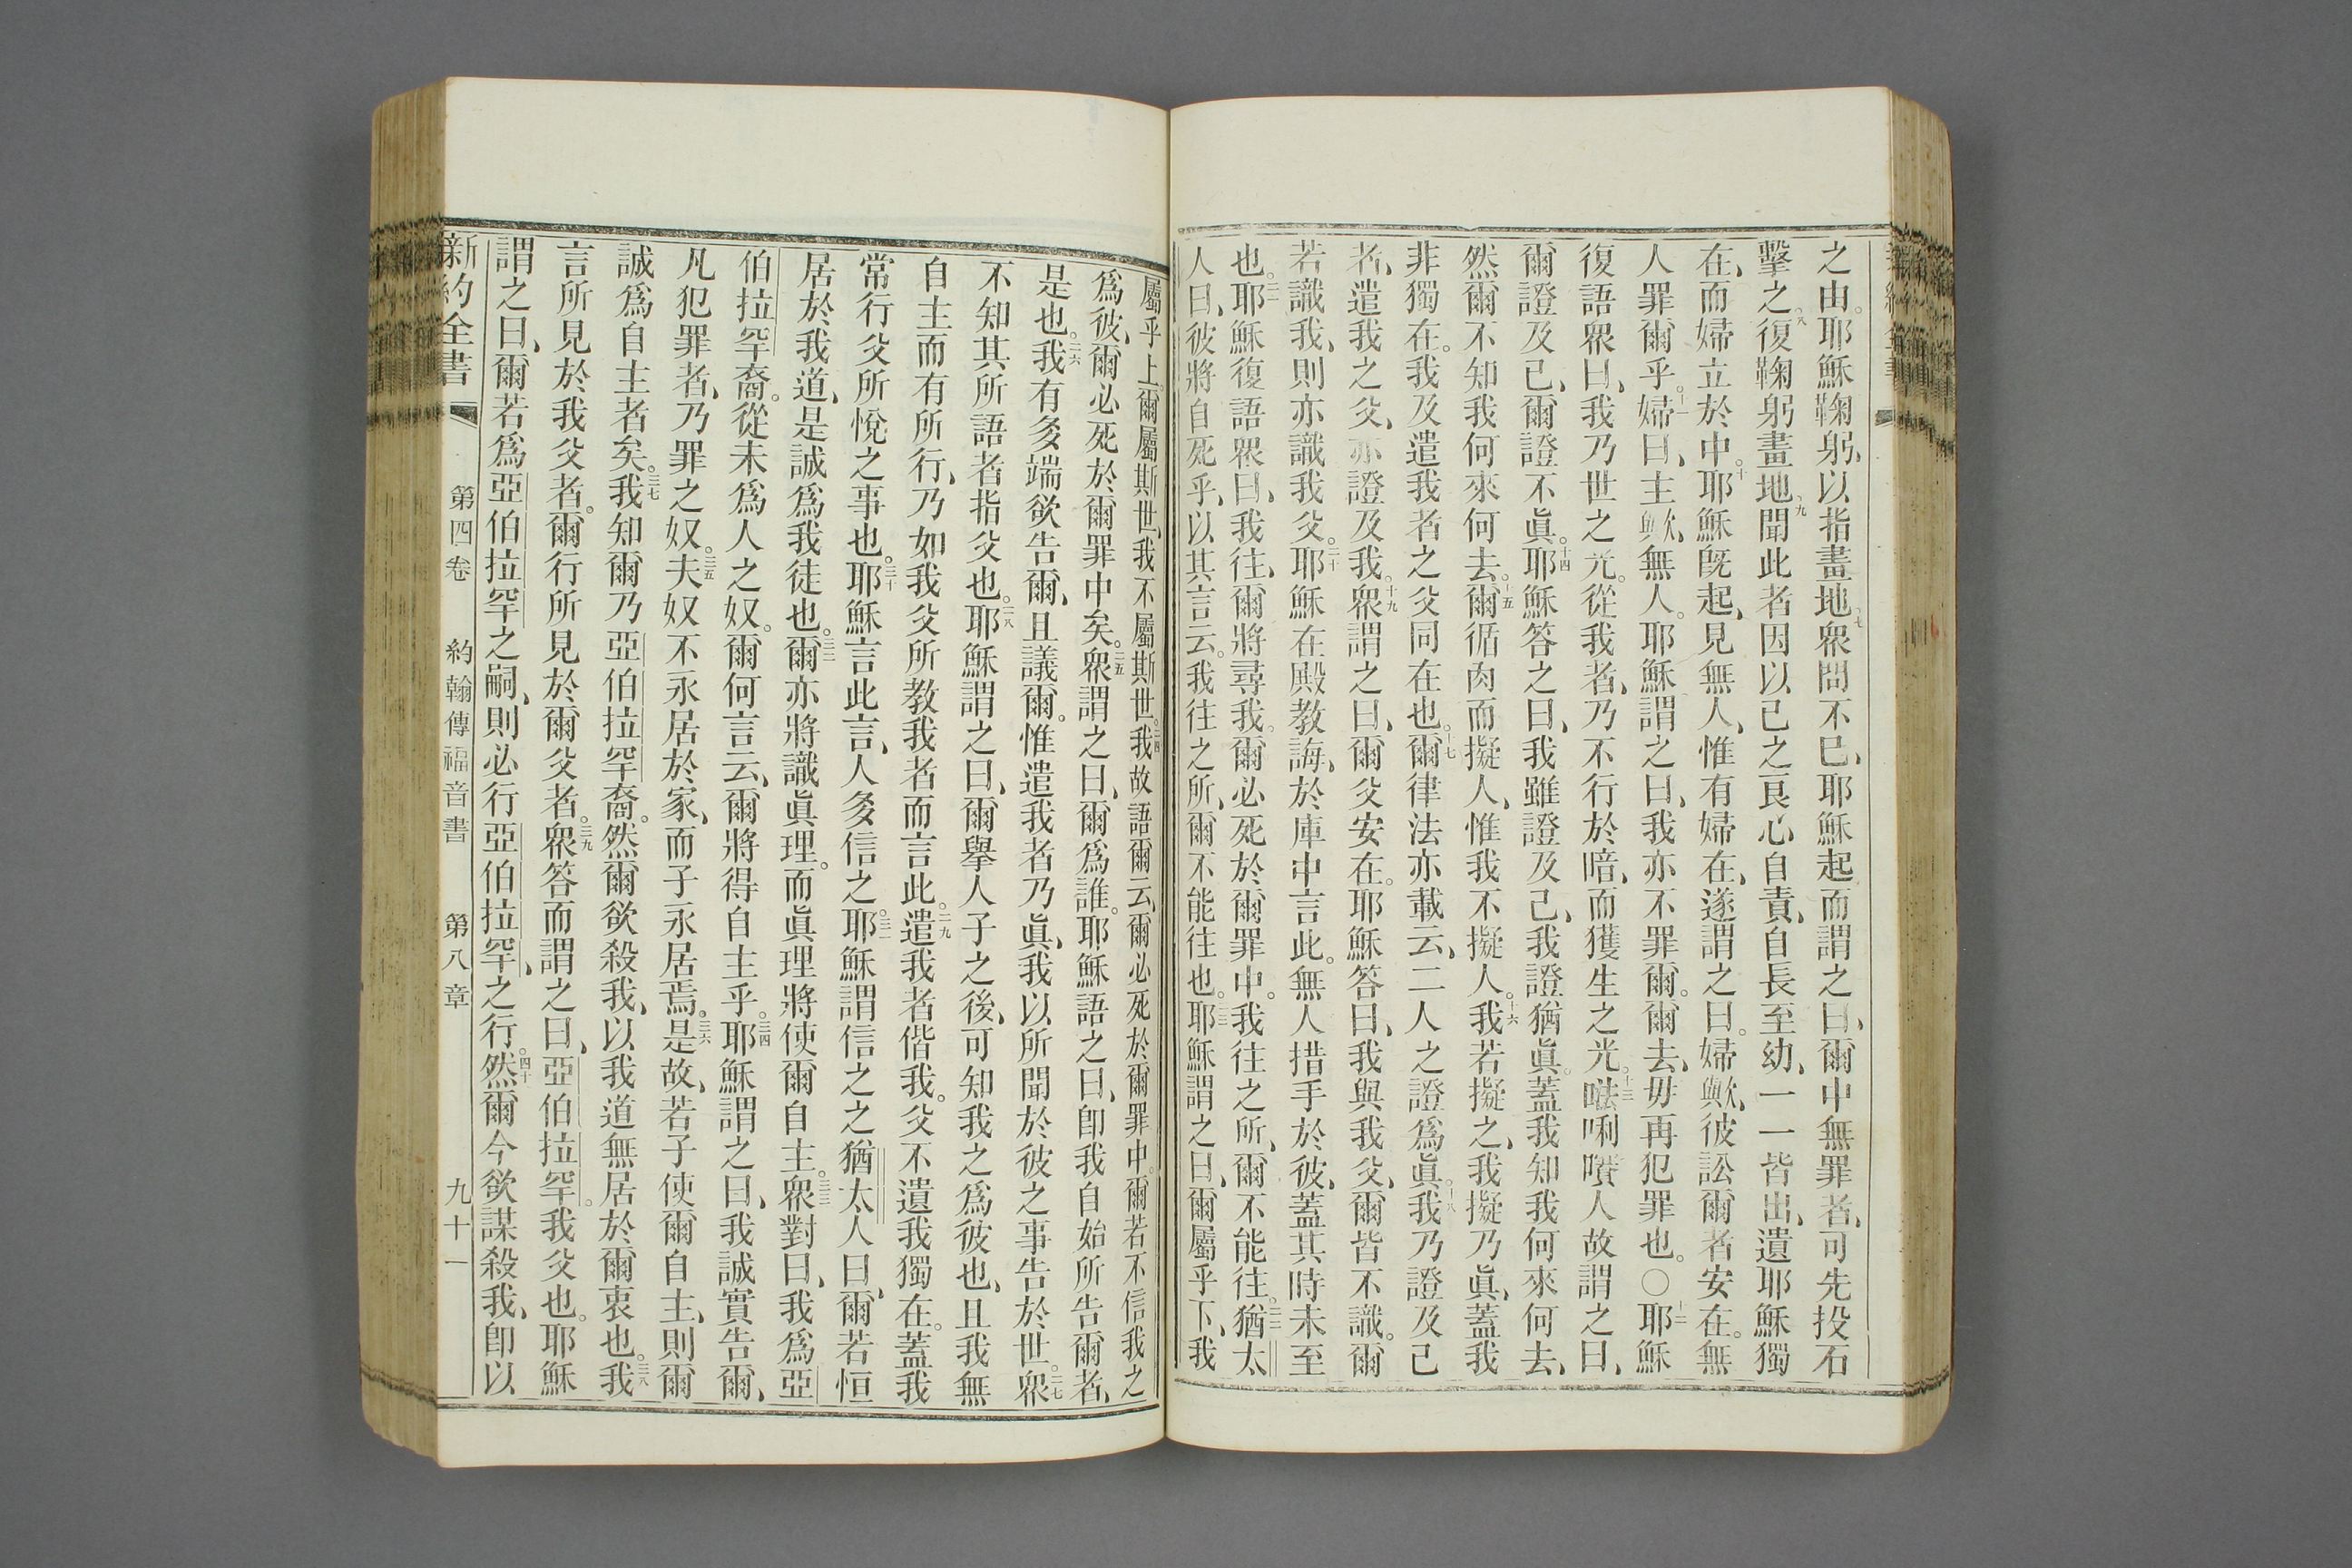 之由。耶穌鞠躬、以指畫地、七衆問不已、耶穌起而謂之曰、爾中無罪者、可先投石
擊之。八復鞠躬畫地、九聞此者因以己之良心自責、自長至幼、一一皆出、遺耶穌獨
在、而婦立於中。十耶穌既起、見無人、惟有婦在、遂謂之曰。婦歟、彼訟爾者安在。無
人罪爾乎。十一婦曰、主歟、無人。耶穌謂之曰、我亦不罪爾。爾去、毋再犯罪也。〇十二耶穌
復語衆曰、我乃世之光。從我者、乃不行於暗、而獲生之光。十三𠵽唎㘔人故謂之曰、
爾證及己、爾證不眞。十四耶穌答之曰、我雖證及己、我證猶眞。蓋我知我何來何去、
然爾不知我何來何去。十五爾循肉而擬人、惟我不擬人。十六我若擬之、我擬乃眞、蓋我
非獨在。我及遣我者之父同在也。十七爾律法亦載云、二人之證爲眞。十八我乃證及己
者、遣我之父、亦證及我。十九衆謂之曰、爾父安在。耶穌答曰、我與我父、爾皆不識。爾
若識我、則亦識我父。二十耶穌在殿教誨、於庫中言此。無人措手於彼、蓋其時未至
也。二一耶穌復語衆曰、我往、爾將尋我。爾必死於爾罪中。我往之所、爾不能往。二二猶太
人曰、彼將自死乎、以其言云。我往之所、爾不能往也。二三耶穌謂之曰、爾屬乎下、我
屬乎上。爾屬斯世、我不屬斯世。二四我故語爾云、爾必死於爾罪中。爾若不信我之
爲彼、爾必死於爾罪中矣。二五衆謂之曰、爾爲誰。耶穌語之曰、卽我自始所告爾者、
是也。二六我有多端欲告爾、且議爾。惟遣我者乃眞、我以所聞於彼之事告於世。二七衆
不知其所語者指父也。二八耶穌謂之曰、爾舉人子之後、可知我之爲彼也、且我無
自主而有所行、乃如我父所教我者而言此。二九遣我者偕我。父不遺我獨在。蓋我
常行父所悅之事也。三十耶穌言此言、人多信之。三一耶穌謂信之之猶太人曰、爾若恒
居於我道、是誠爲我徒也。三二爾亦將識眞理。而眞理將使爾自主。三三衆對曰、我爲亞
伯拉罕裔。從未爲人之奴。爾何言云、爾將得自主乎。三四耶穌謂之曰、我誠實告爾、
凡犯罪者、乃罪之奴。三五夫奴不永居於家、而子永居焉。三六是故、若子使爾自主、則爾
誠爲自主者矣。三七我知爾乃亞伯拉罕裔。然爾欲殺我、以我道無居於爾衷也。三八我
言所見於我父者。爾行所見於爾父者。三九衆答而謂之曰、亞伯拉罕。我父也。耶穌
謂之曰、爾若爲亞伯拉罕之嗣、則必行亞伯拉罕、之行。四十然爾今欲謀殺我、卽以
新約全書 第四卷 約翰傳福音書 第八章 九十一